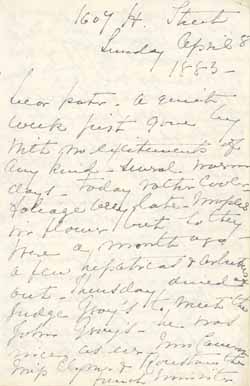 1607 H. Street
Sunday April 8
1883 -
Dear pater. A quiet
week just gone by
with no excitements of
any kind - Several warm
days - today rather cool -
foliage very late - Maples
in flower but so they
were a month ago
a few hepaticas &
out - Thursday dined at
Judge Gray's to meet the
John Gray's - he was
nice as ever Mrs Cameron
Miss &
French Minister